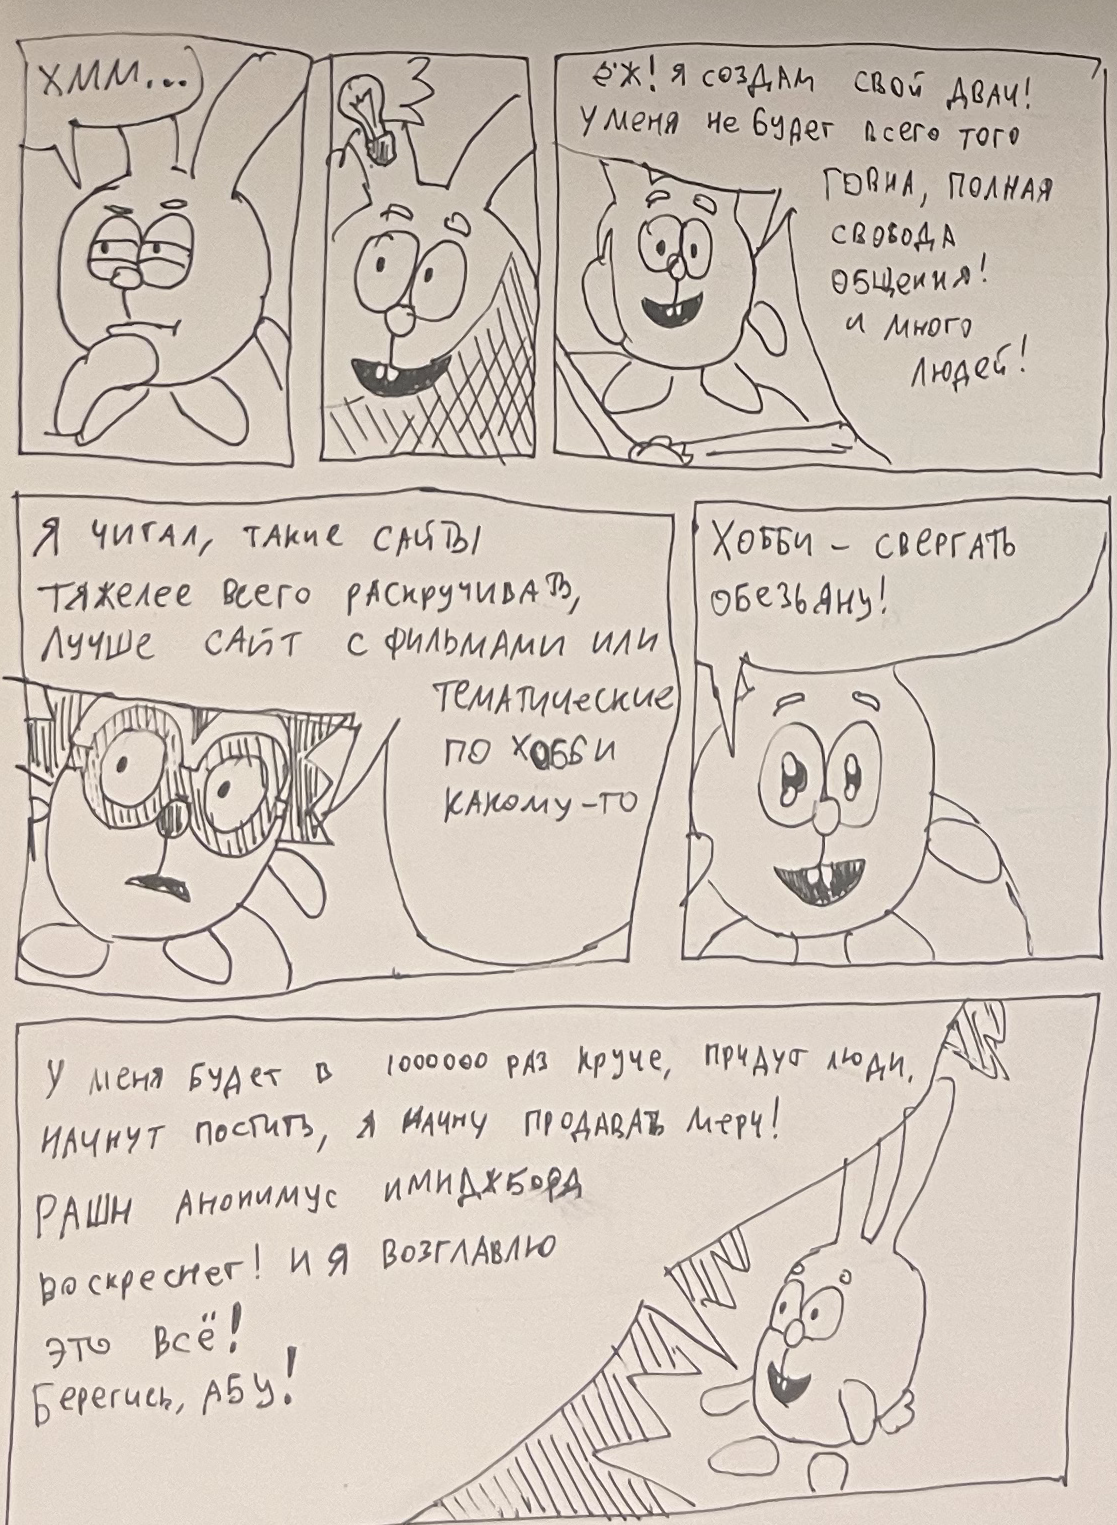 ХММ...
ЁЖ! Я СОЗДАМ СВОЙ ДВАЧ!
У МЕНЯ НЕ БУДЕТ ВСЕГО ТОГО
ГОВНА, ПОЛНАЯ
СВОБОДА
ОБЩЕНИЯ!
И МНОГО
ЛЮДЕЙ!
Я ЧИТАЛ, ТАКИЕ САЙТЫ
ТЯЖЕЛЕЕ ВСЕГО РАСКРУЧИВАТЬ,
ЛУЧШЕ САЙТ С ФИЛЬМАМИ ИЛИ
ТЕМАТИЧЕСКИЕ
ПО ХОББИ
КАКОМУ-ТО
ХОББИ – СВЕРГАТЬ
ОБЕЗЬЯНУ!
У МЕНЯ БУДЕТ В 1000000 РАЗ КРУЧЕ, ПРИДУТ ЛЮДИ,
НАЧНУТ ПОСТИТЬ, Я НАЧНУ ПРОДАВАТЬ МЕРЧ!
РАШН АНОНИМУС ИМИДЖБОРД
ВОСКРЕСНЕТ! И Я ВОЗГЛАВЛЮ
ЭТО ВСЁ!
БЕРЕГИСЬ, АБУ!